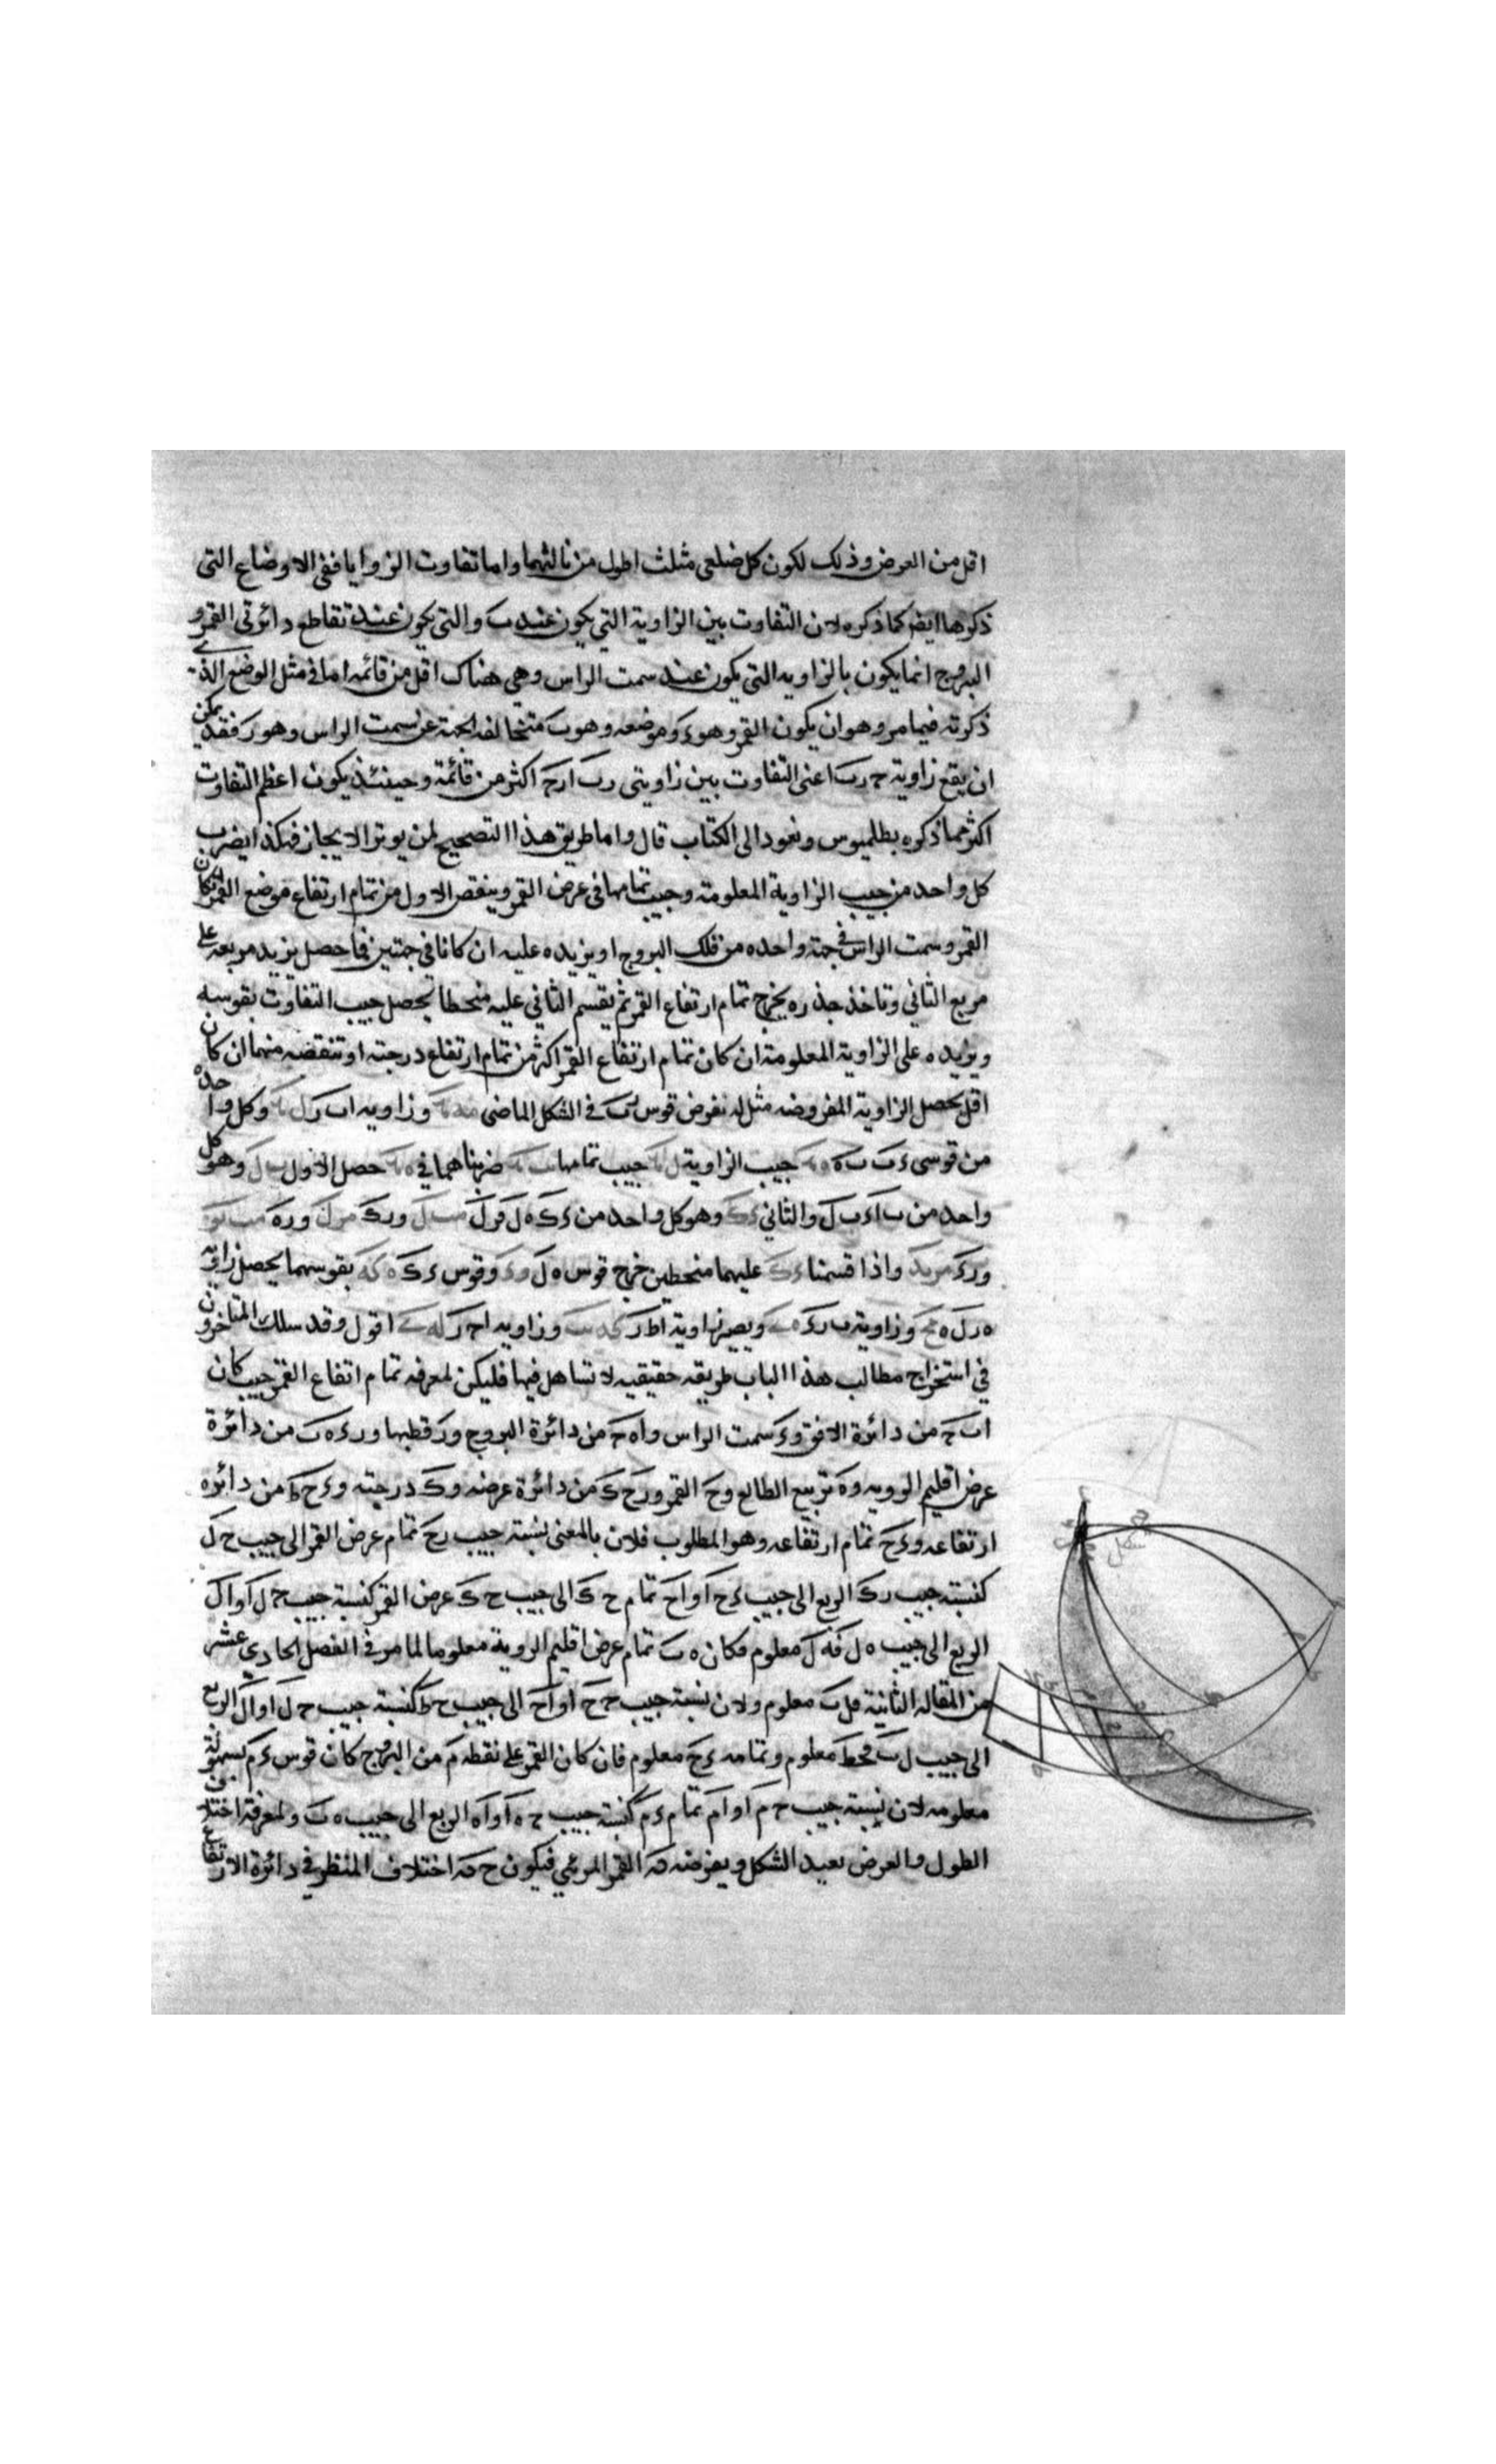 اقل من العرض وذلك لكون كل ضلعى مثلث اطول من ثالثهما واما تفاوت الزوايا ففى الاوضاع التى
ذكرها ايضا كما ذكره لان التفاوت بين الزاوية التي يكون عند ب والتى يكون عند تقاطع دائرتى القمر و
البروج انما يكون بالزاويه التى يكون عند سمت الراس وهي هناك اقل من قائمه اما فى مثل الوضع الذى
ذكرته فيما مر وهو ان يكون القمر وهو ء وموضعه وهو ب متخالفه الجهة عن سمت الراس وهو ر فقد يمكن
ان يقع زاوية ح ر ب اعنى التفاوت بين زاويتى ر ب ا ر ح اكثر من قائمة وحينئذ يكون اعظم التفاوت
اكثر مما ذكره بطلميوس ونعود الى الكتاب قال واما طريق هذا التصحيح لمن يوثر الايجاز فهكذا يضرب
كل واحد من جيب الزاوية المعلومة وجيب تمامها فى عرض القمر وينقص الاول من تمام ارتفاع موضع القمر ان كان
القمر وسمت الراس فى جهة واحده من فلك البروج او يزيده عليه ان كانا فى جهتين فما حصل يزيد مربعه على
مربع الثانى وتاخذ جذره يخرج تمام ارتفاع القمر ثم يقسم الثانى عليه منحطا يحصل جيب التفاوت يقوسه
ويزيده على الزاوية المعلومة ان كان تمام ارتفاع القمر اكثر من تمام ارتفاع درجته او تنقصه منها ان كان
اقل يحصل الزاوية المفروضه مثاله نفرض قوس ر ب فى الشكل الماضى وزاويه ا ب ر وكل واحده
من قوسى ء ب ب ه جيب الزاوية جيب تمامها ضربناهما فى حصل الاول وهو كل
واحد من ب ا ء ب ل والثاني وهو كل واحد من ء ك ه ل و ر ك ور ه
ور ء واذا قسمنا عليهما منحطين خرج قوس ه ل وقوس ء ك بقوسهما يحصل زاوية
ه ر ل وزاوية ب ر ء ويصير زاوية ا ط ر وزاويه ا ح ر اقول وقد سلك المتاخرون
في استخراج مطالب هذا الباب طريقه حقيقيه لا تساهل فيها فليكن لمعرفه تمام ارتفاع القمر حيث كان
ا ب ح من دائرة الافق و ء سمت الراس و ا ه ح من دائرة البروج و ر قطبها و ر ء ه ب من دائرة
عرض اقليم الرويه و ه تربيع الطالع و ح القمر و ر ح ك من دائرة عرضه و ك درجته و ء ح ط من دائره
ارتفاعه و ء ح تمام ارتفاعه وهو المطلوب فلان بالمغنى نسبة جيب ر ح تمام عرض القمر الى جيب ح ل
كنسبة جيب ر ك الربع الى جيب ح ا و ا ح تمام ح ك الى جيب ح ك عرض القمر كنسبة جيب ح ل ا و ا ل
الربع الى جيب ه ل ف ه ل معلوم فكان ه ب تمام عرض اقليم الروية معلوما لما مر فى الفصل الحادى عشر
من المقاله الثانية ف ل ب معلوم ولان نسبة جيب ح ح ا و ا ح الى جيب ح ط كنسبة جيب ح ل ا و ا ل الربع
الى جيب ل ب ف ح ط معلوم وتمامه ء ح معلوم فان كان القمر على نقطه م من البروج كان قوس ء م بسهولة
معلومه لان نسبة جيب ح م ا و ا م تمام كنسبة جيب ح ه ا و ا ه الربع الى جيب ه ب ولمعرفة اختلافى
الطول والعرض نعيد الشكل ويفرضه القمر المرئي فيكون اختلاف المنظر فى دائرة الارتفاع
شكل